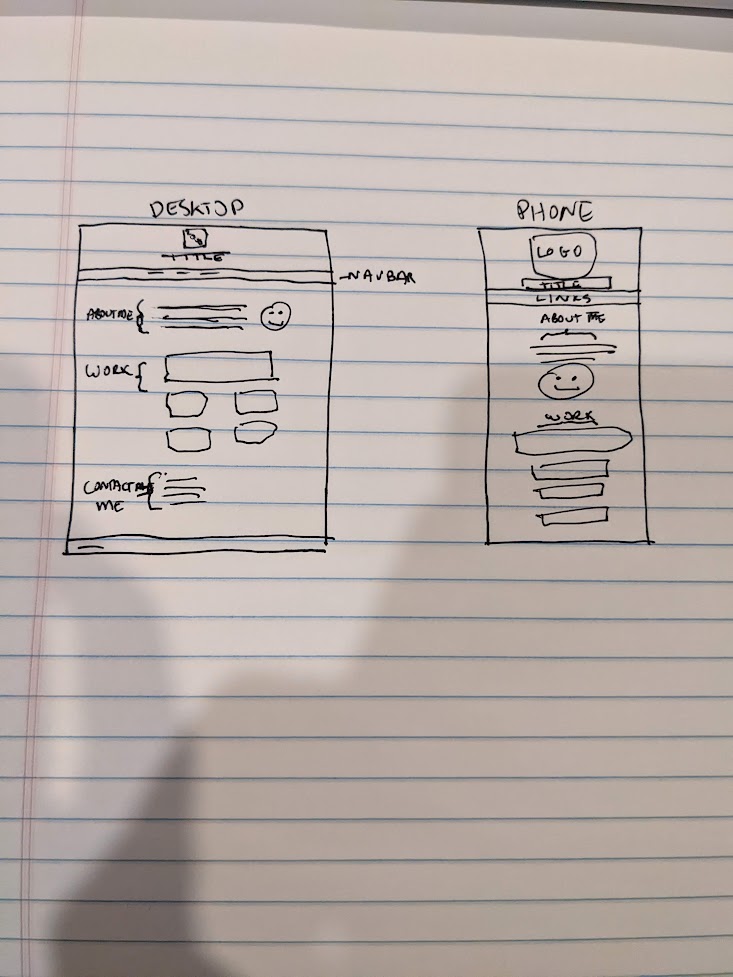 DESKTOP
TITLE
NAVBAR
ABOUT ME
WORK
CONTACT
ME
PHONE
LOGO
TITLE
LINKS
ABOUT ME
WORK